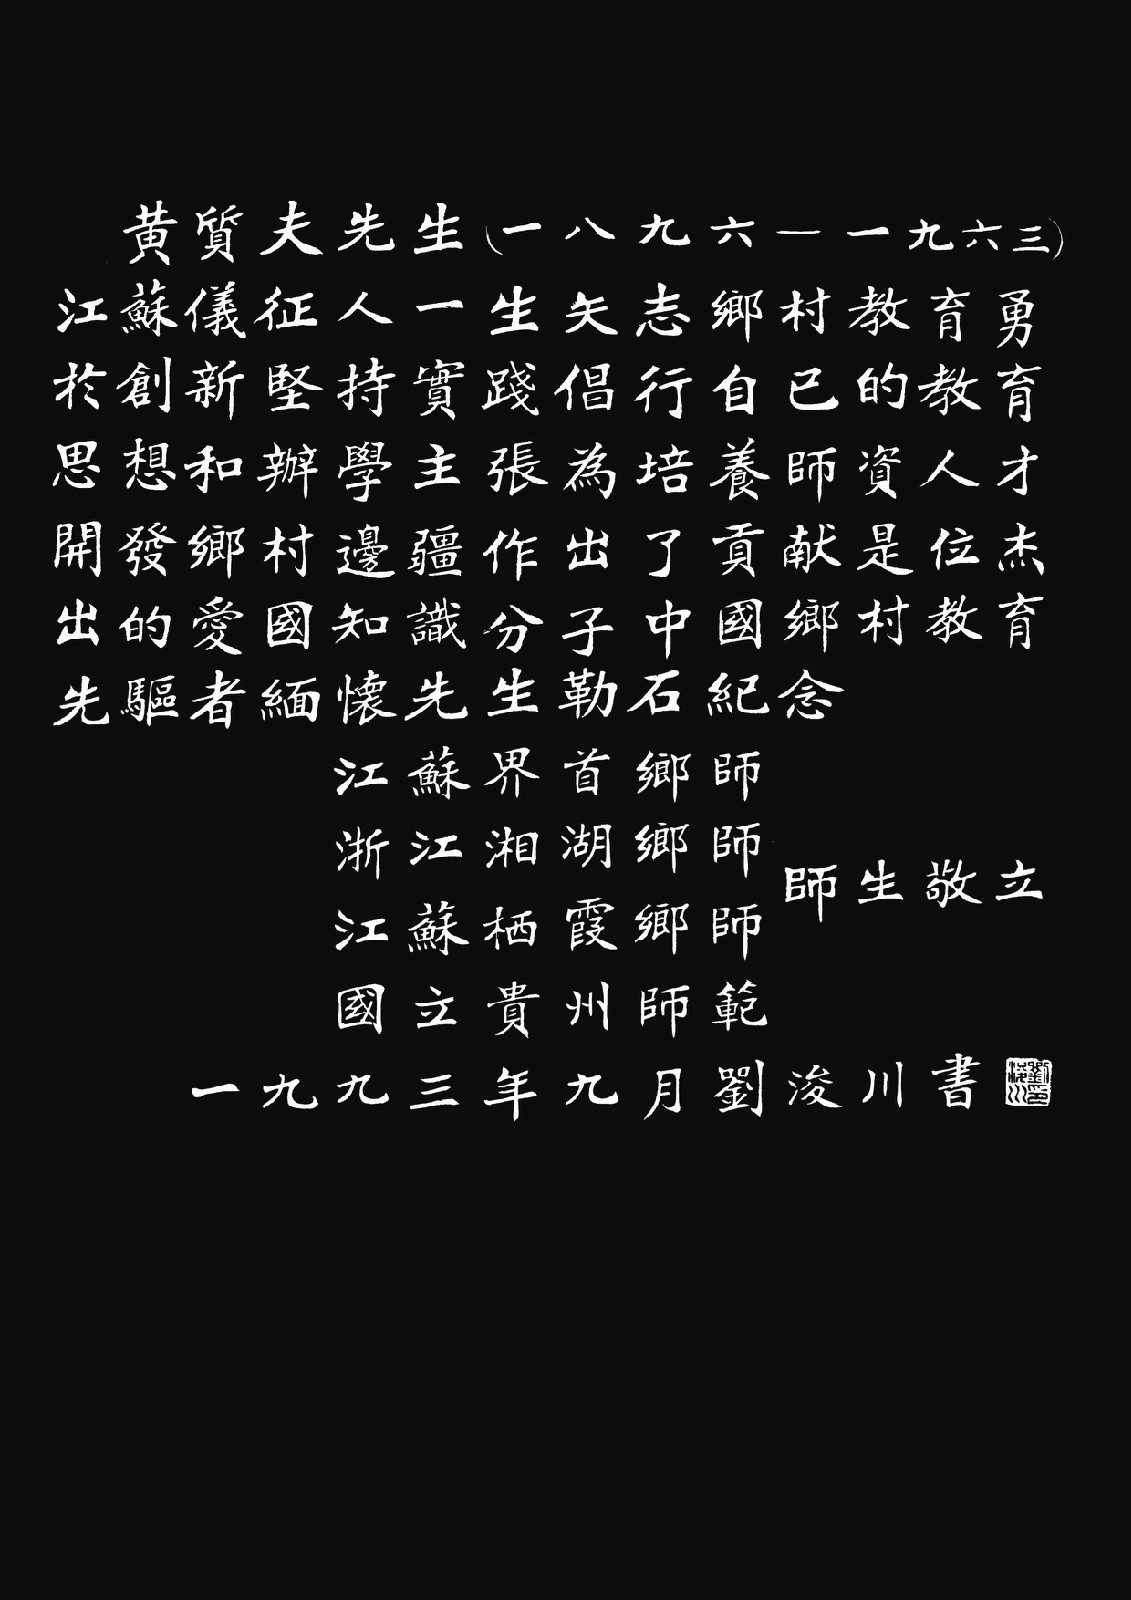 黄質夫先生(一八九六—一九六三)
江蘇儀征人一生矢志鄉村教育勇
於創新堅持實踐倡行自已的教育
思想和辦學主張為培養師資人才
開發鄉村邊疆作出了貢献是位杰
出的愛國知識分子中國鄉村教育
先驅者緬懷先生勒石紀念
江蘇界首鄉師
浙江湘湖鄉師
江蘇栖霞鄉師
國立貴州師範
師生敬立
一九九三年九月劉浚川書
劉浚川印